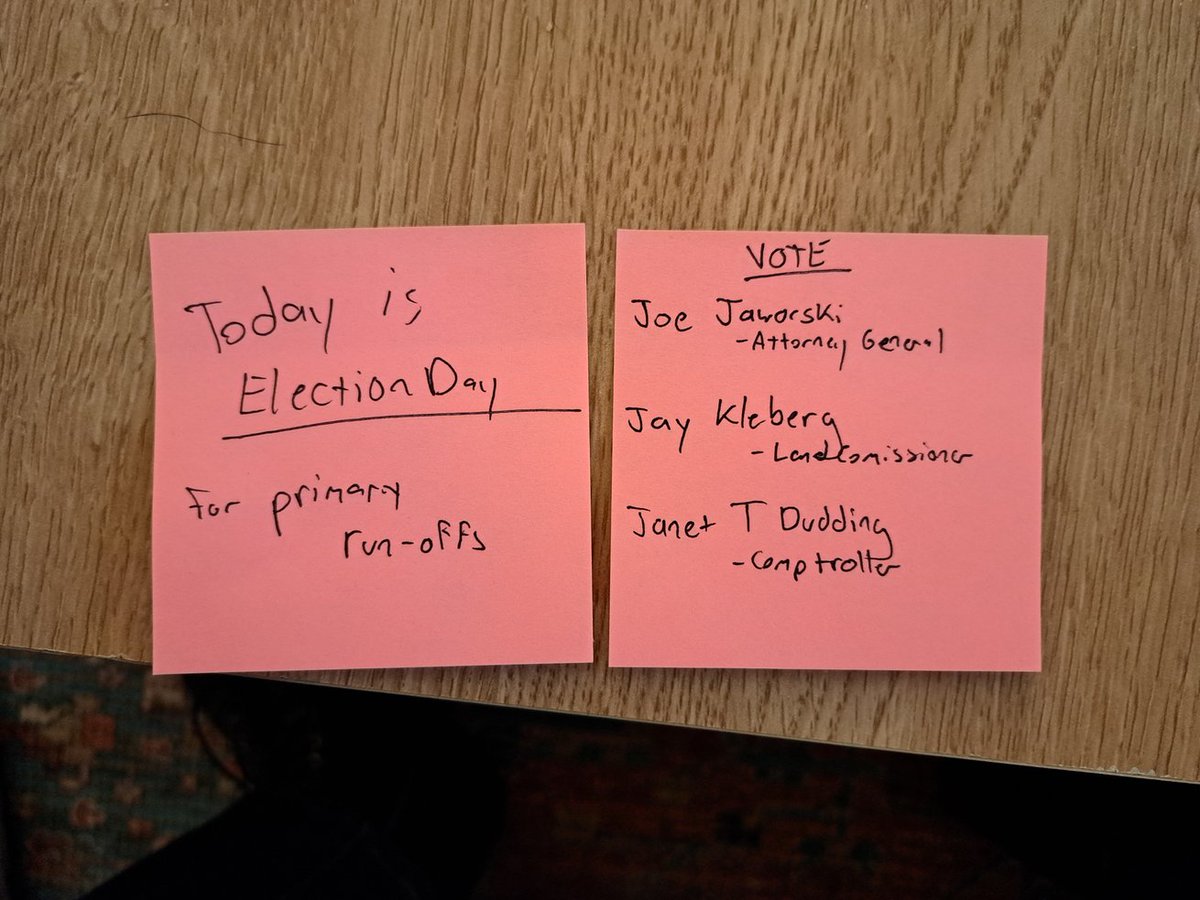 Today is
Election Day
For primary
run-offs
VOTE
Joe Jaworski
- Attorney General
Jay Kleberg
- Land Comissioner
Janet T Dudding
- Comptroller